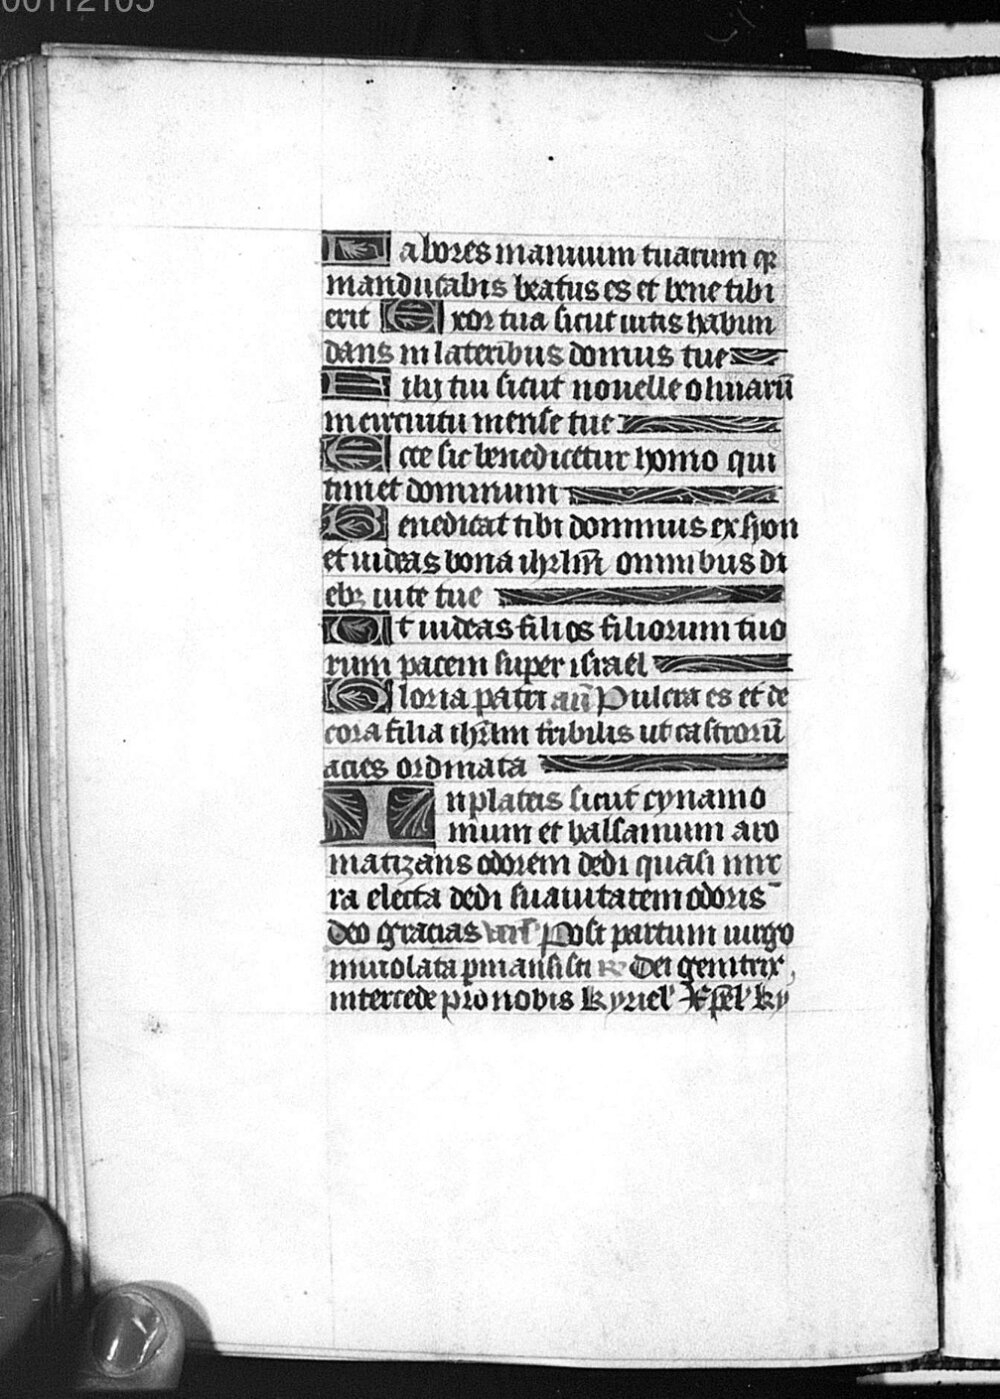 00112103
Labores manuum tuarum qr
manducabis beatus es et bene tibi
erit Uxor tua sicut uitis habun
dans in lateribus domus tue
Filij tui sicut nouelle oliuarū
in circuitu mense tue
Ecce sic benedicetur homo qui
timet dominum
Benedicat tibi dominus ex syon
et uideas bona ihrlm̄ omnibus di
ebꝫ uite tue
Et uideas filios filiorum tuo
rum pacem super israel
Gloria patri an̄ Pulcra es et de
cora filia ihrlm tribilis ut castrorū
acies ordinata
In plateis sicut cynamo
mum et balsamum aro
matizans odorem dedi quasi mir
ra electa dedi suauitatem odoris
deo gracias vers Post partum uirgo
inuiolata pmansisti ℟ Dei genitrix
intercede pro nobis kyriel' Xp̄el' ky